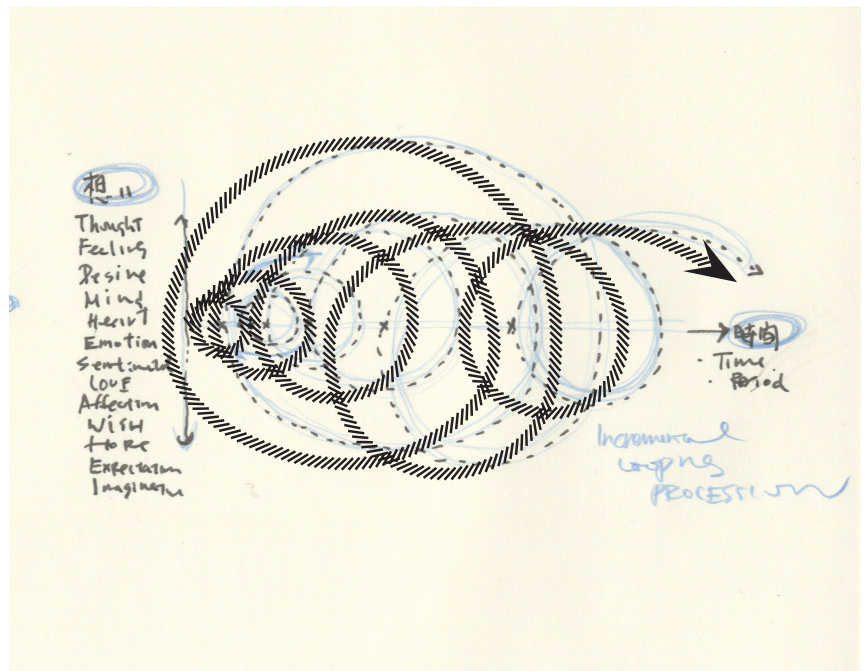 想い
Thought
Feeling
Desire
Mind
Heart
Emotion
Sentiment
Love
Affection
Wish
Hope
Expectation
Imagination
時間
· Time
· Period
Incremental
Looping
PROCESSION